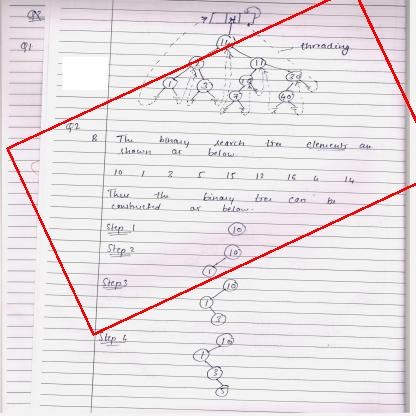 Q1
threading
Q2
B The binary search tree elements are
shown as below.
10 1 3 5 15 12 16 6 14
Thus the binary tree can be
constructed as below.
Step 1
10
Step 2
10
1
Step 3
10
1
3
Step 4
10
1
3
5